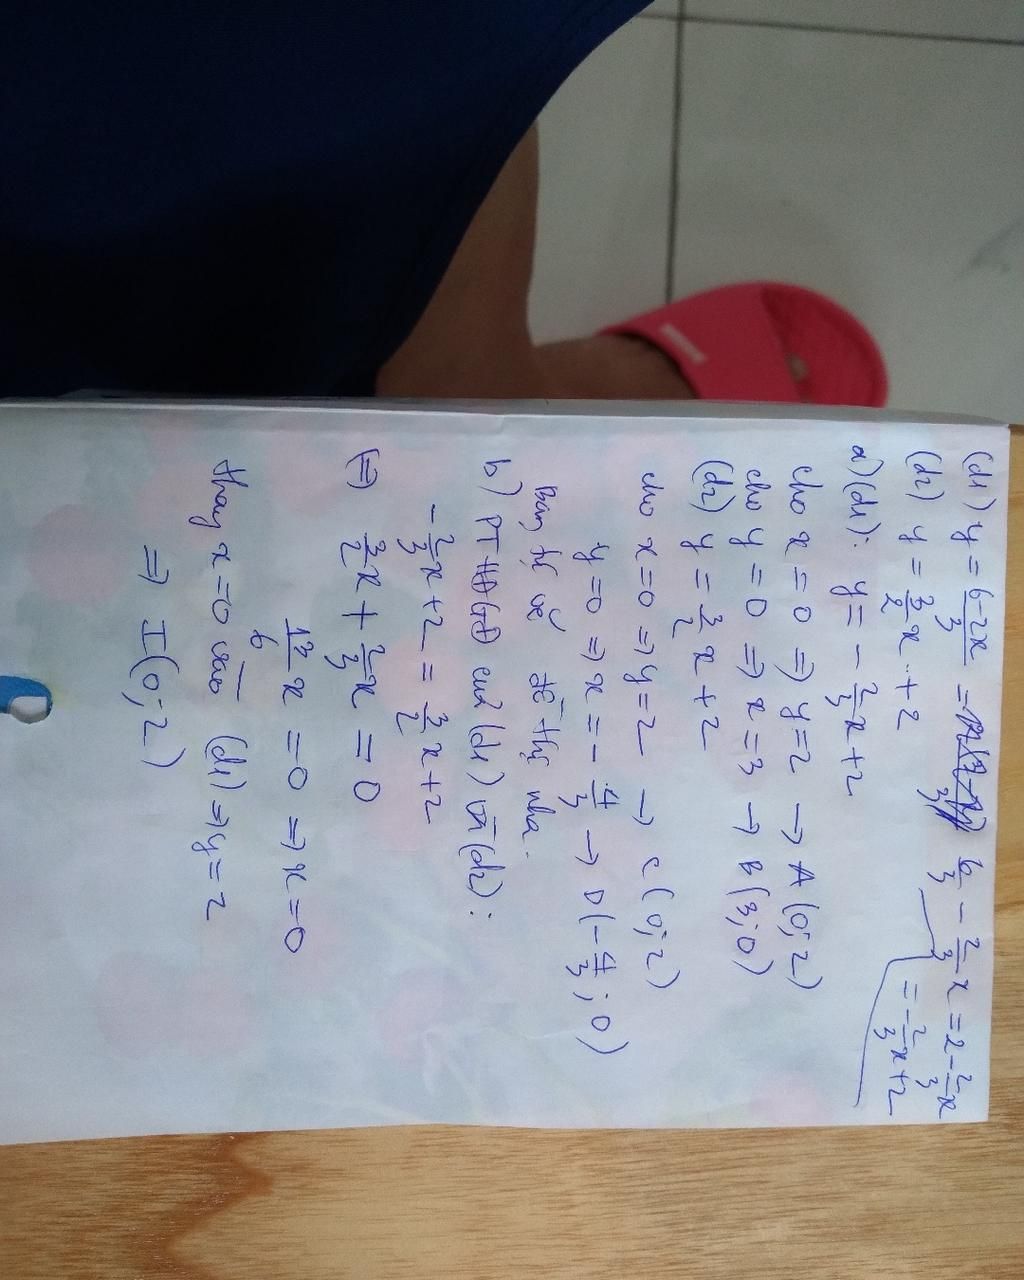 (d1) y = 6-2x/3 = 6/3 - 2/3 x = 2 - 2/3 x
= -2/3 x + 2
(d2) y = 3/2 x + 2
a) (d1): y = - 2/3 x + 2
cho x = 0 => y = 2 → A (0; 2)
cho y = 0 => x = 3 → B (3; 0)
(d2) y = 3/2 x + 2
cho x = 0 => y = 2 → C (0; 2)
y = 0 => x = - 4/3 → D (- 4/3; 0)
Bạn tự vẽ đồ thị nha.
b) PT HĐGĐ của (d1) và (d2):
- 2/3 x + 2 = 3/2 x + 2
(=) 3/2 x + 2/3 x = 0
13/6 x = 0 => x = 0
thay x = 0 vào (d1) => y = 2
=> I (0; 2)